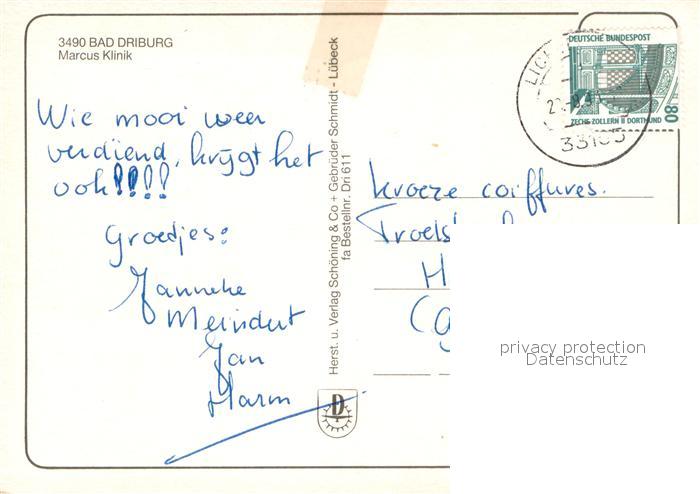 3490 BAD DRIBURG
Marcus Klinik
Wie mooi weer
verdiend, krijgt het
ook!!!!
Groedjes:
Janneke
Meindert
Jan
Harm
Herst. u. Verlag Schöning & Co + Gebrüder Schmidt - Lübeck
fa Bestellnr. Dri 611
DEUTSCHE BUNDESPOST
80
ZECHE ZOLLERN II DORTMUND
kroeze coiffures.
Troels
H
D
privacy protection
Datenschutz